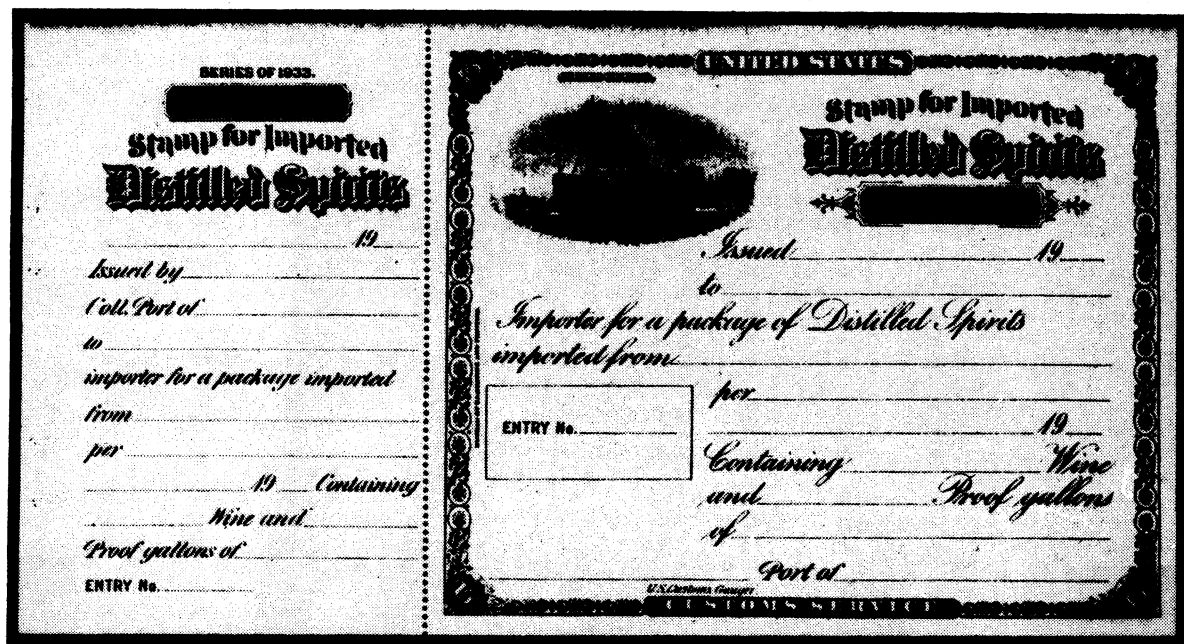 SERIES OF 1933.
Stamp for Imported
Distilled Spirits
19
Issued by
Coll. Port of
to
importer for a package imported
from
per
19 Containing
Wine and
Proof gallons of
ENTRY No.
UNITED STATES
Stamp for Imported
Distilled Spirits
Issued 19
to
Importer for a package of Distilled Spirits
imported from
per
ENTRY No.
19
Containing Wine
and Proof gallons
of
Port of
U.S. Customs Gauger
CUSTOMS SERVICE